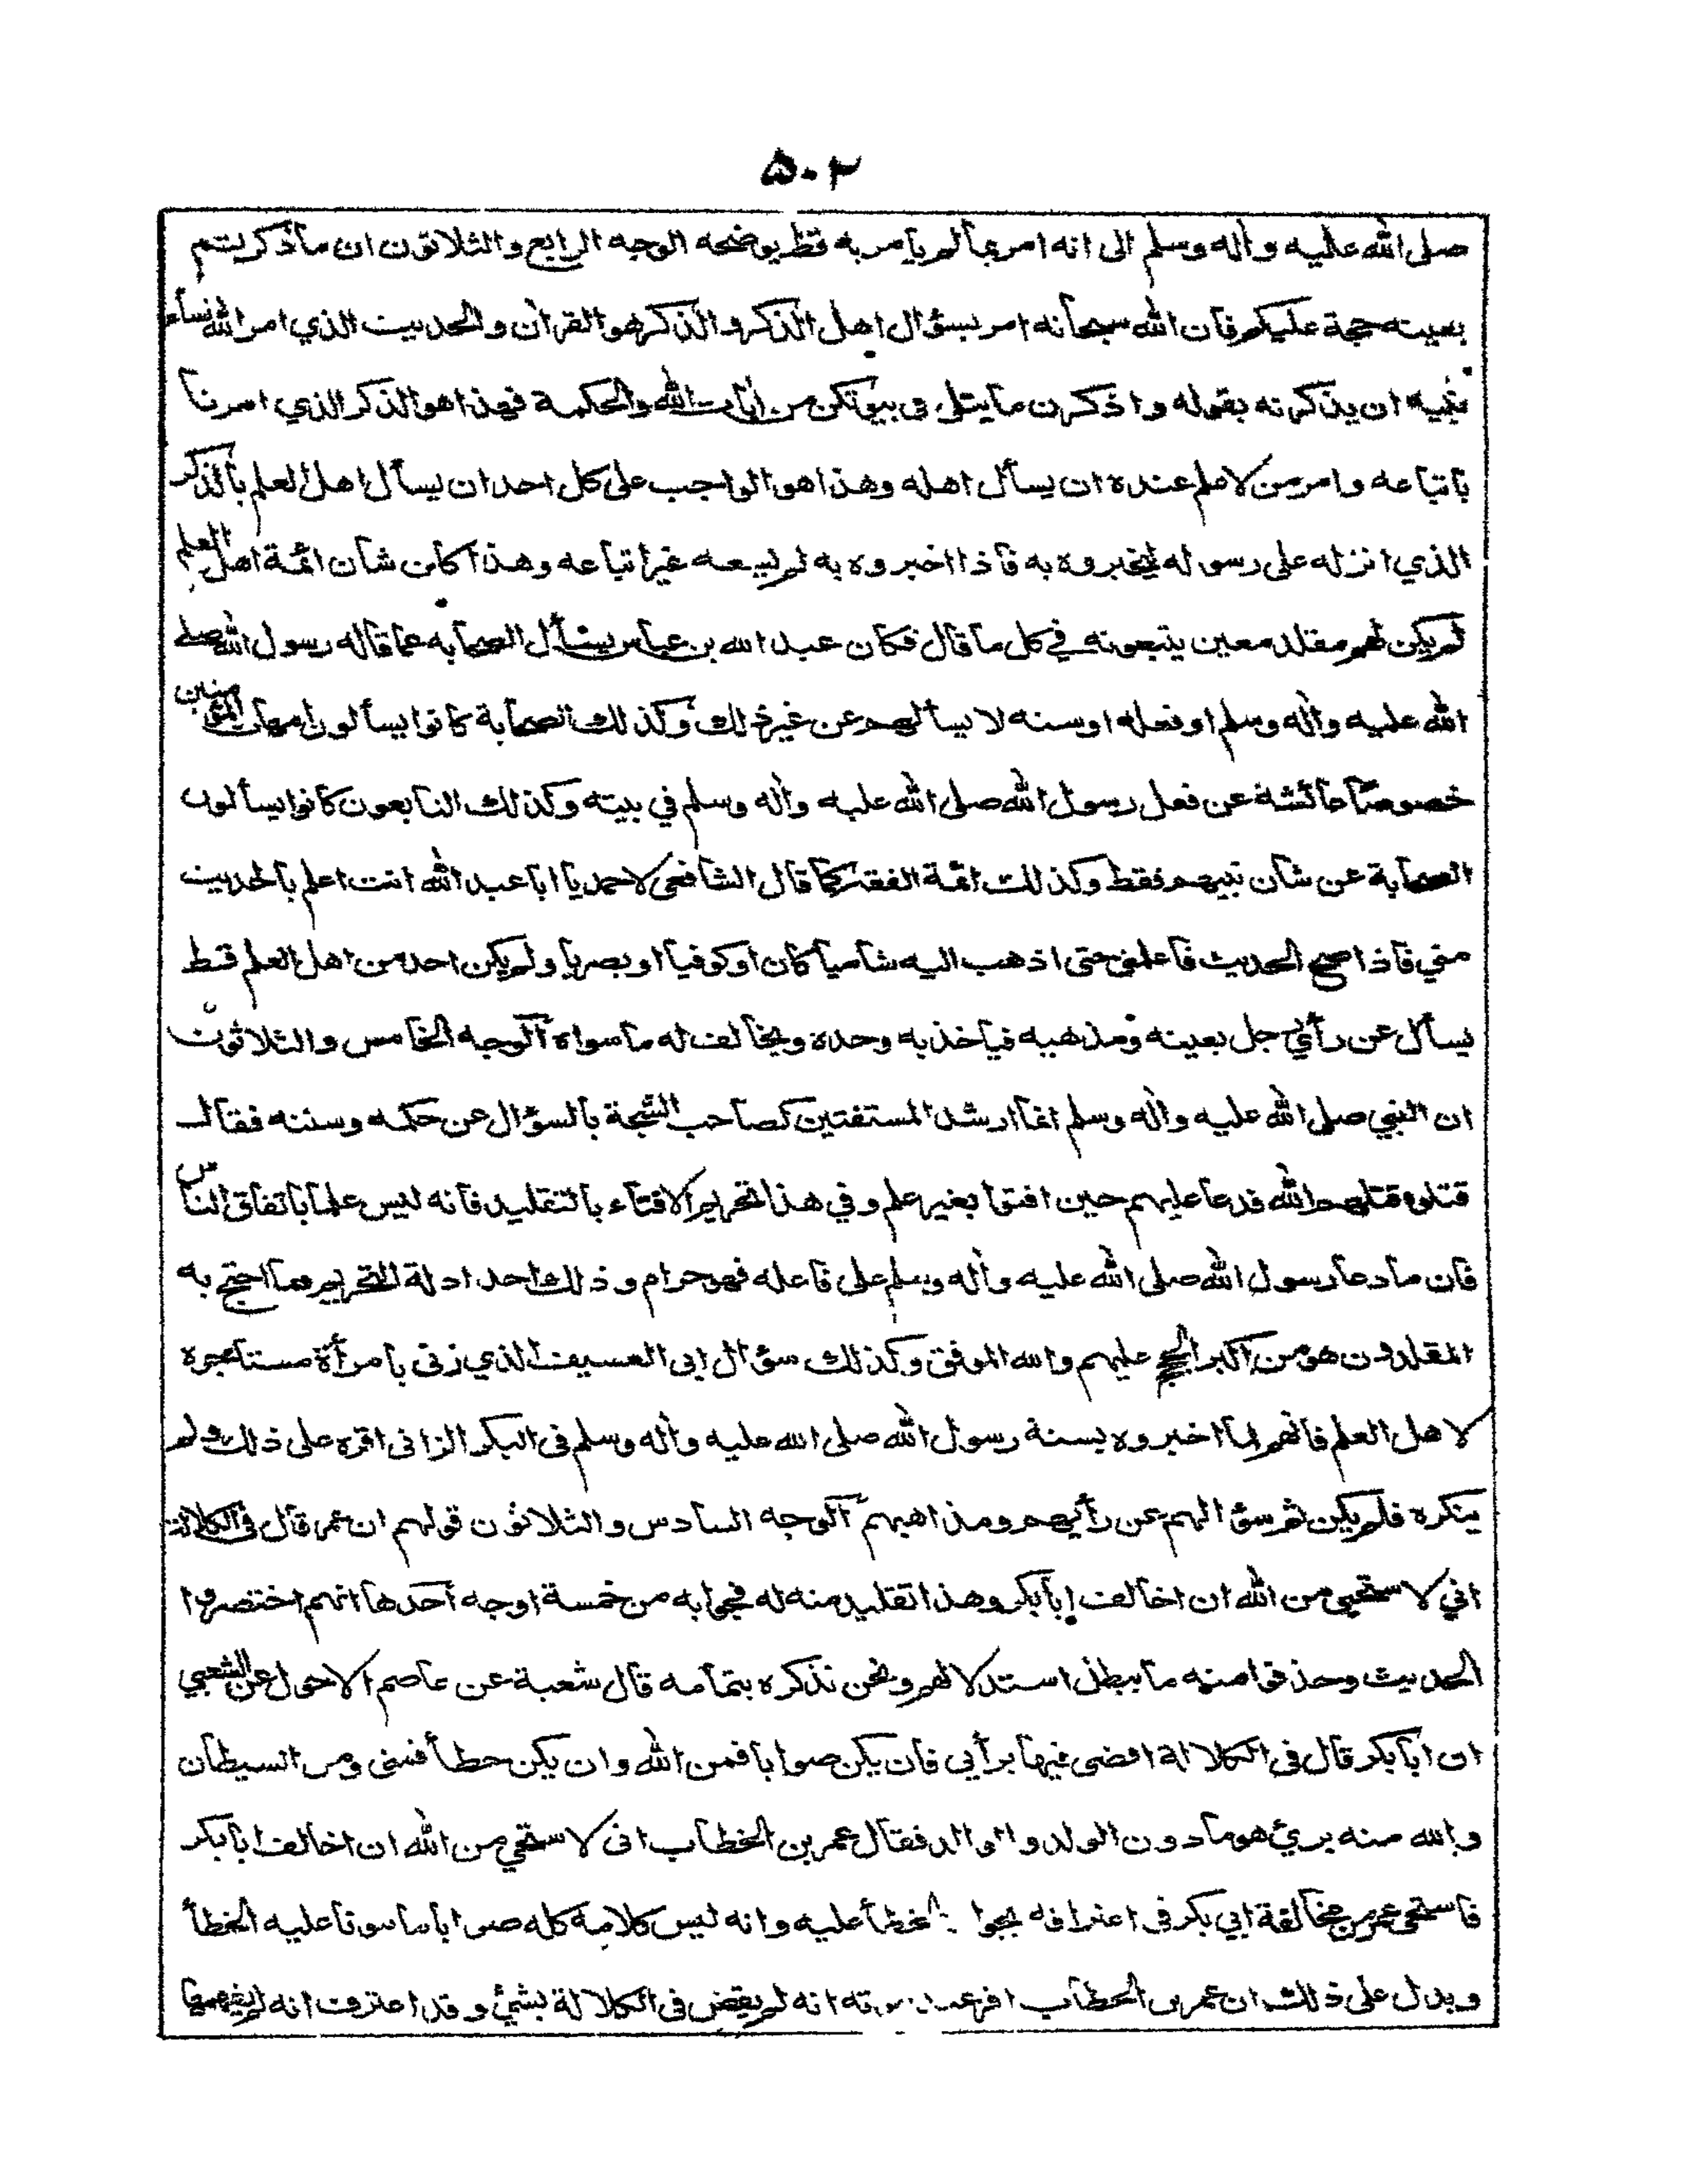 ٥٠٢
صلى الله عليه وآله وسلم الى انه امر بما لم يأمر به قط يوضحه الوجه الرابع والثلاثون ان ما ذكرتم
بعينه حجة عليكم فان الله سبحانه امر بسؤال اهل الذكر والذكر هو القرآن والحديث الذي امر الله نساء
نبيه ان يذكرنه بقوله واذكرن ما يتلى في بيوتكن من آيات الله والحكمة فهذا هو الذكر الذي امرنا
باتباعه وامر من لا علم عنده ان يسأل اهله وهذا هو الواجب على كل احد ان يسأل اهل العلم بالذكر
الذي انزله على رسوله ليخبروه به فاذا اخبروه به لم يسعه غير اتباعه وهذا كان شأن ائمة اهل العلم
لم يكن لهم مقلد معين يتبعونه في كل ما قال فكان عبد الله بن عباس يسأل الصحابة عما قاله رسول الله صلى
الله عليه وآله وسلم او فعله او سنه لا يسألهم عن غير ذلك وكذلك الصحابة كانوا يسألون امهات المؤمنين
خصوصا عائشة عن فعل رسول الله صلى الله عليه وآله وسلم في بيته وكذلك التابعون كانوا يسألون
الصحابة عن شأن نبيهم فقط وكذلك ائمة الفقه كما قال الشافعي لاحمد يا ابا عبد الله انت اعلم بالحديث
مني فاذا صح الحديث فاعلمني حتى اذهب اليه شاميا كان او كوفيا او بصريا ولم يكن احد من اهل العلم قط
يسأل عن رأي رجل بعينه ومذهبه فيأخذ به وحده ويخالف له ما سواه الوجه الخامس والثلاثون
ان النبي صلى الله عليه وآله وسلم انما ارشد المستفتين كصاحب الشجة بالسؤال عن حكمه وسنته فقال
قتلوه قتلهم الله فدعا عليهم حين افتوا بغير علم وفي هذا تحريم الافتاء بالتقليد فانه ليس علما باتفاق الناس
فان ما دعا رسول الله صلى الله عليه وآله وسلم على فاعله فهو حرام وذلك احد ادلة التحريم فما احتج به
المقلدون هو من اكبر الحجج عليهم والله الموفق وكذلك سؤال ابي العسيف الذي زنى بامرأة مستأجره
لاهل العلم فانهم لما اخبروه بسنة رسول الله صلى الله عليه وآله وسلم في البكر الزاني اقره على ذلك ولم
ينكره فلم يكن ثم سؤالهم عن رأيهم ومذاهبهم الوجه السادس والثلاثون قولهم ان عمر قال في الكلالة
اني لاستحيي من الله ان اخالف ابا بكر وهذا تقليد منه له فجوابه من خمسة اوجه احدها انهم اختصروا
الحديث وحذفوا منه ما يبطل استدلالهم ونحن نذكره بتمامه قال شعبة عن عاصم الاحول عن الشعبي
ان ابا بكر قال في الكلالة اقضي فيها برأيي فان يكن صوابا فمن الله وان يكن خطأ فمني ومن الشيطان
والله منه بريء هو ما دون الولد والوالد فقال عمر بن الخطاب اني لاستحيي من الله ان اخالف ابا بكر
فاستحى عمر من مخالفة ابي بكر في اعترافه بجواز الخطأ عليه وانه ليس كلامه كله صوابا مأمونا عليه الخطأ
ويدل على ذلك ان عمر بن الخطاب اقر عند موته انه لم يقض في الكلالة بشيء وقد اعترف انه لم يفهمها